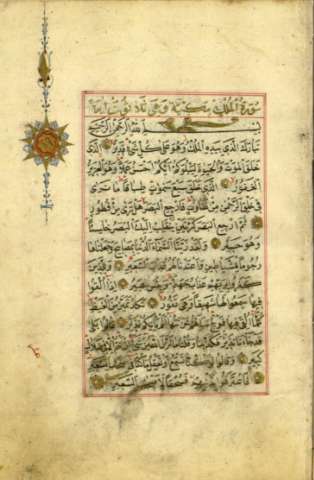 سورة الملك مكية وهي ثلاثون آية
بسم الله الرحمن الرحيم
تبارك الذي بيده الملك وهو على كل شيء قدير الذي
خلق الموت والحيوة ليبلوكم ايكم احسن عملا وهو العزيز
الغفور الذي خلق سبع سموات طباقا ما ترى
في خلق الرحمن من تفاوت فارجع البصر هل ترى من فطور
ثم ارجع البصر كرتين ينقلب اليك البصر خاسئا
وهو حسير ولقد زينا السماء الدنيا بمصابيح وجعلناها
رجوما للشياطين واعتدنا لهم عذاب السعير وللذين
كفروا بربهم عذاب جهنم وبئس المصير اذا القوا
فيها سمعوا لها شهيقا وهي تفور تكاد تميز من الغيظ
كلما القي فيها فوج سالهم خزنتها الم ياتكم نذير قالوا بلى
قد جاءنا نذير فكذبنا وقلنا ما نزل الله من شيء ان انتم الا في ضلال
كبير وقالوا لو كنا نسمع او نعقل ما كنا في اصحاب السعير
فاعترفوا بذنبهم فسحقا لاصحاب السعير